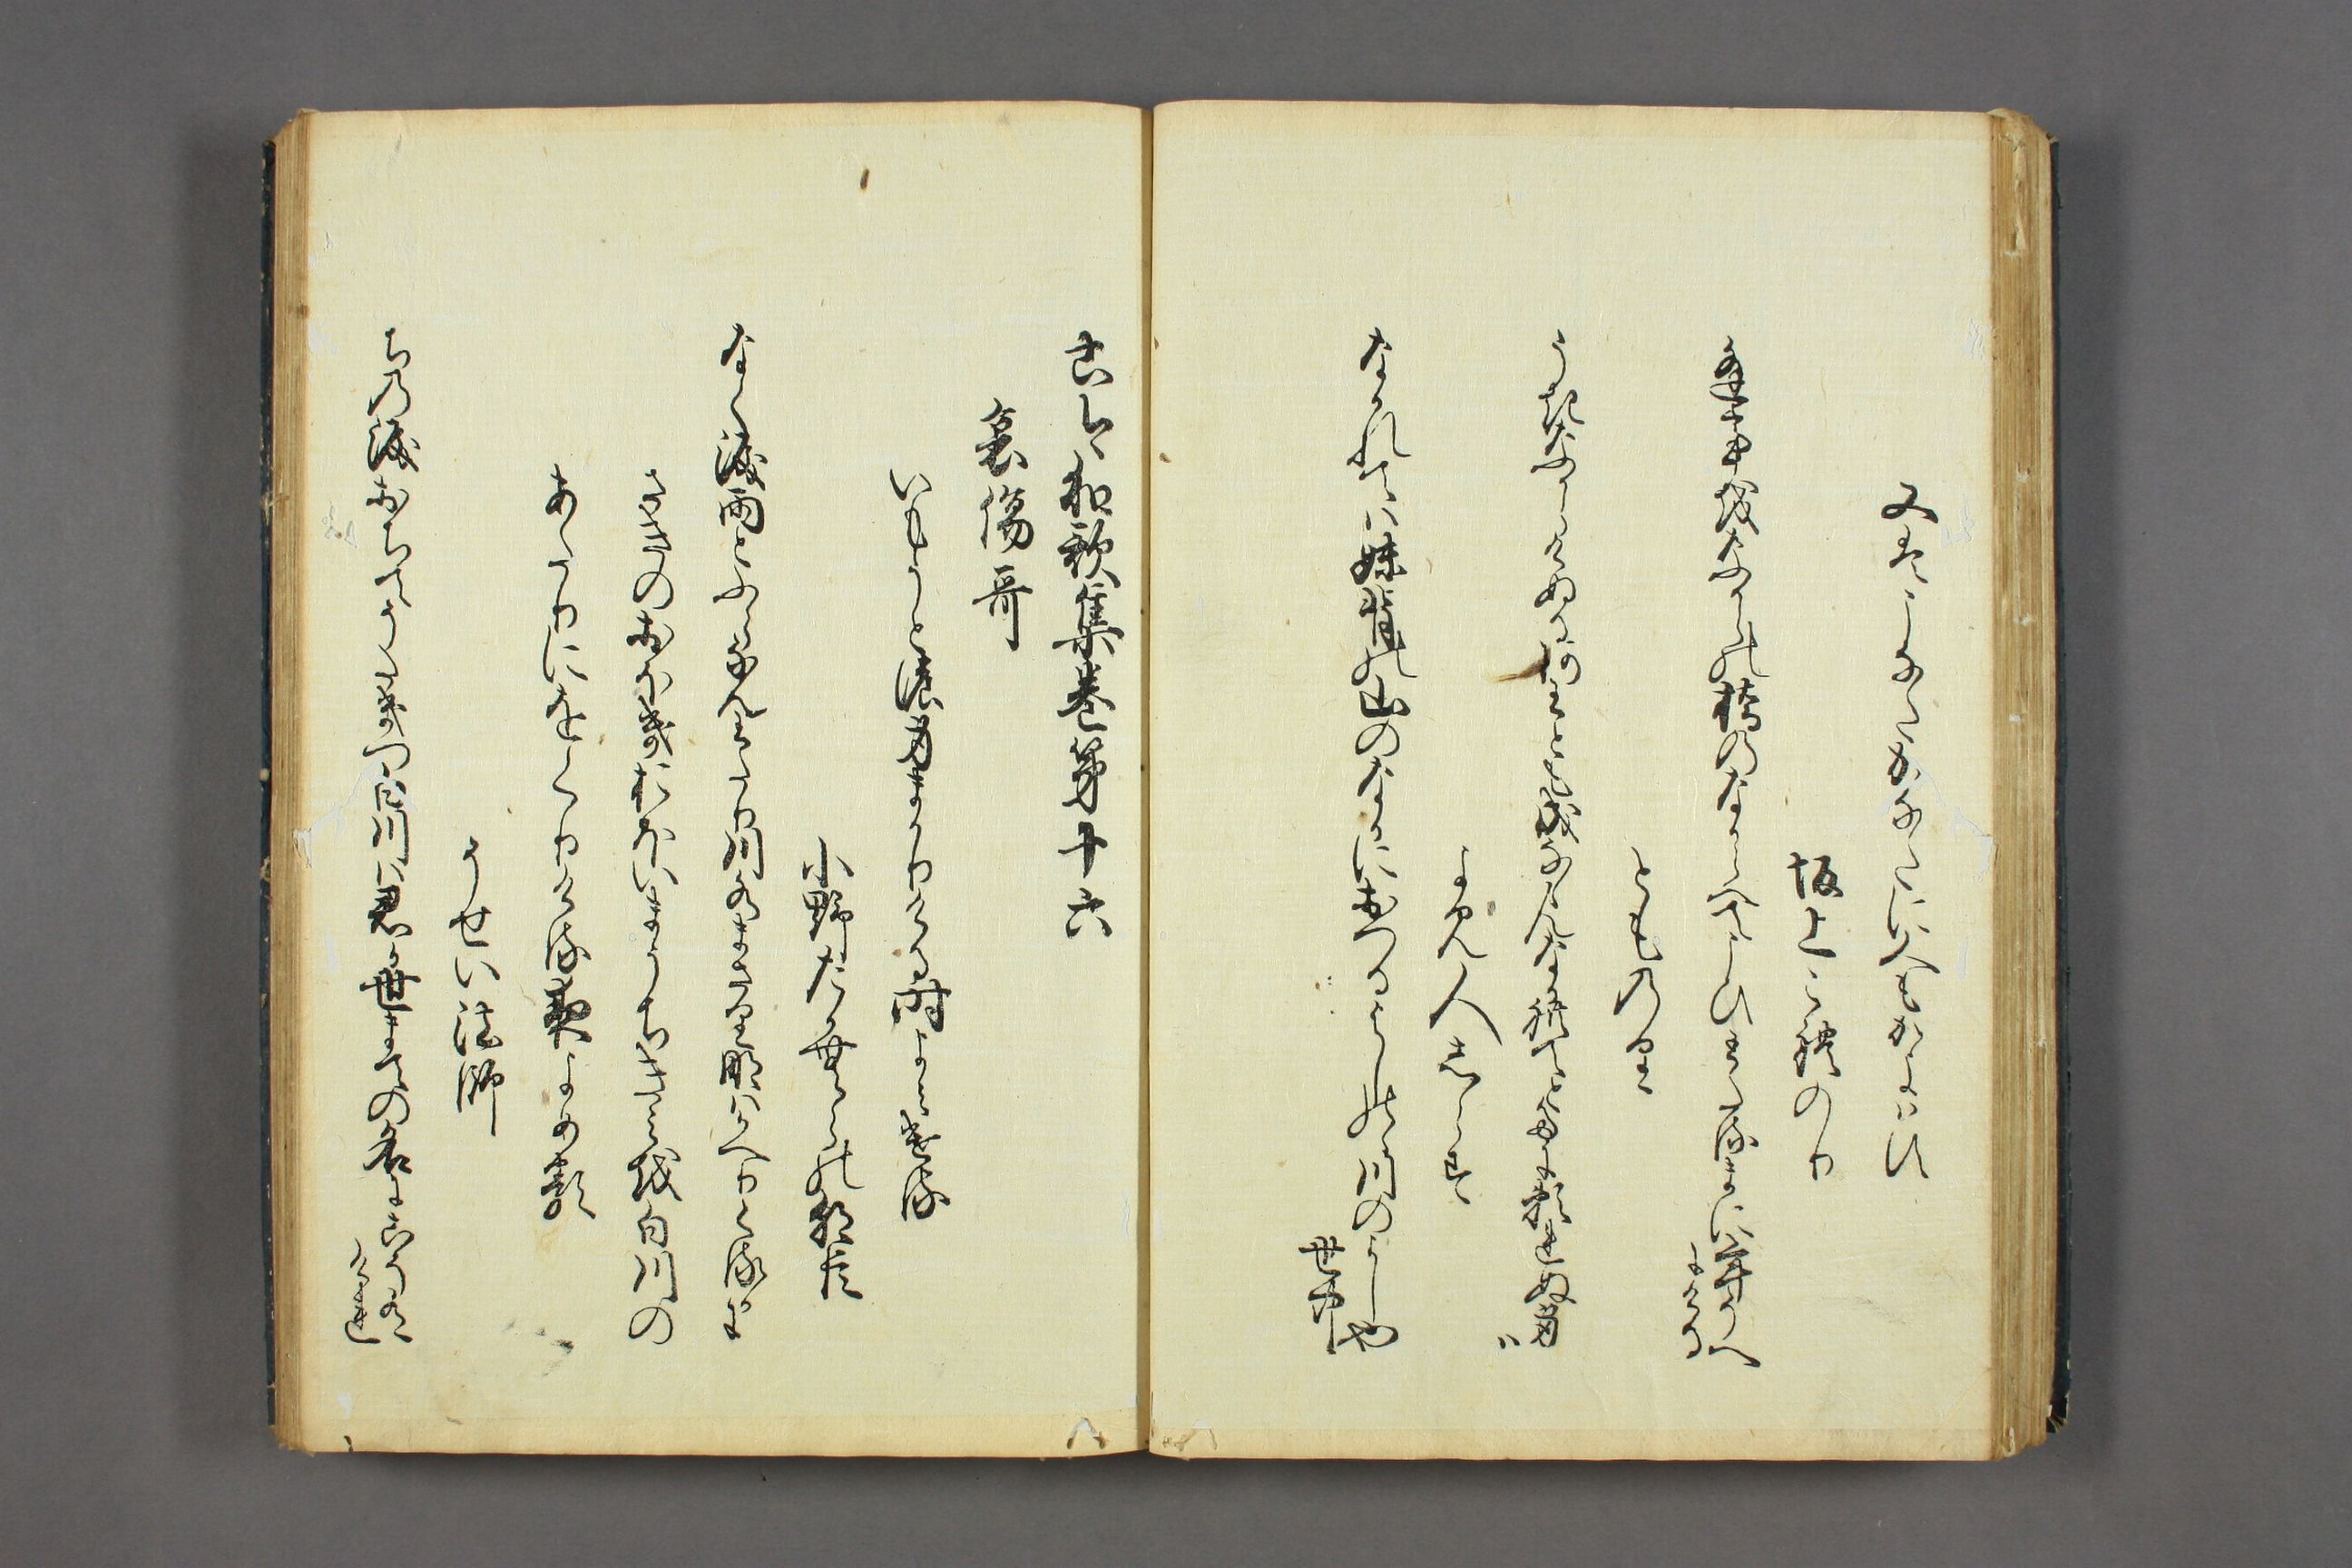 又はこなたかなたに人もかよはす
坂上これのり
あふ事をなからの橋のなからへてこひわたるまに年そへに
ける
とものり
うきなからけぬるあわともなりなゝんなかれてとたにたのまれぬ身
は
よみ人しらす
なかれては妹背の山のなかにおつるよしのゝ川のよしや
世中
古今和歌集巻第十六
哀傷哥
いもうとの身まかりける時よみける
小野たかむらの朝臣
なく涙雨とふらなんわたり川水まさりなはかへりくるかに
さきのおほきおほいまうちきみを白川の
あたりにおくりける夜よめる
そせい法師
ちの涙おちてそたきつ白川は君か世まての名にこそ
ありけれ